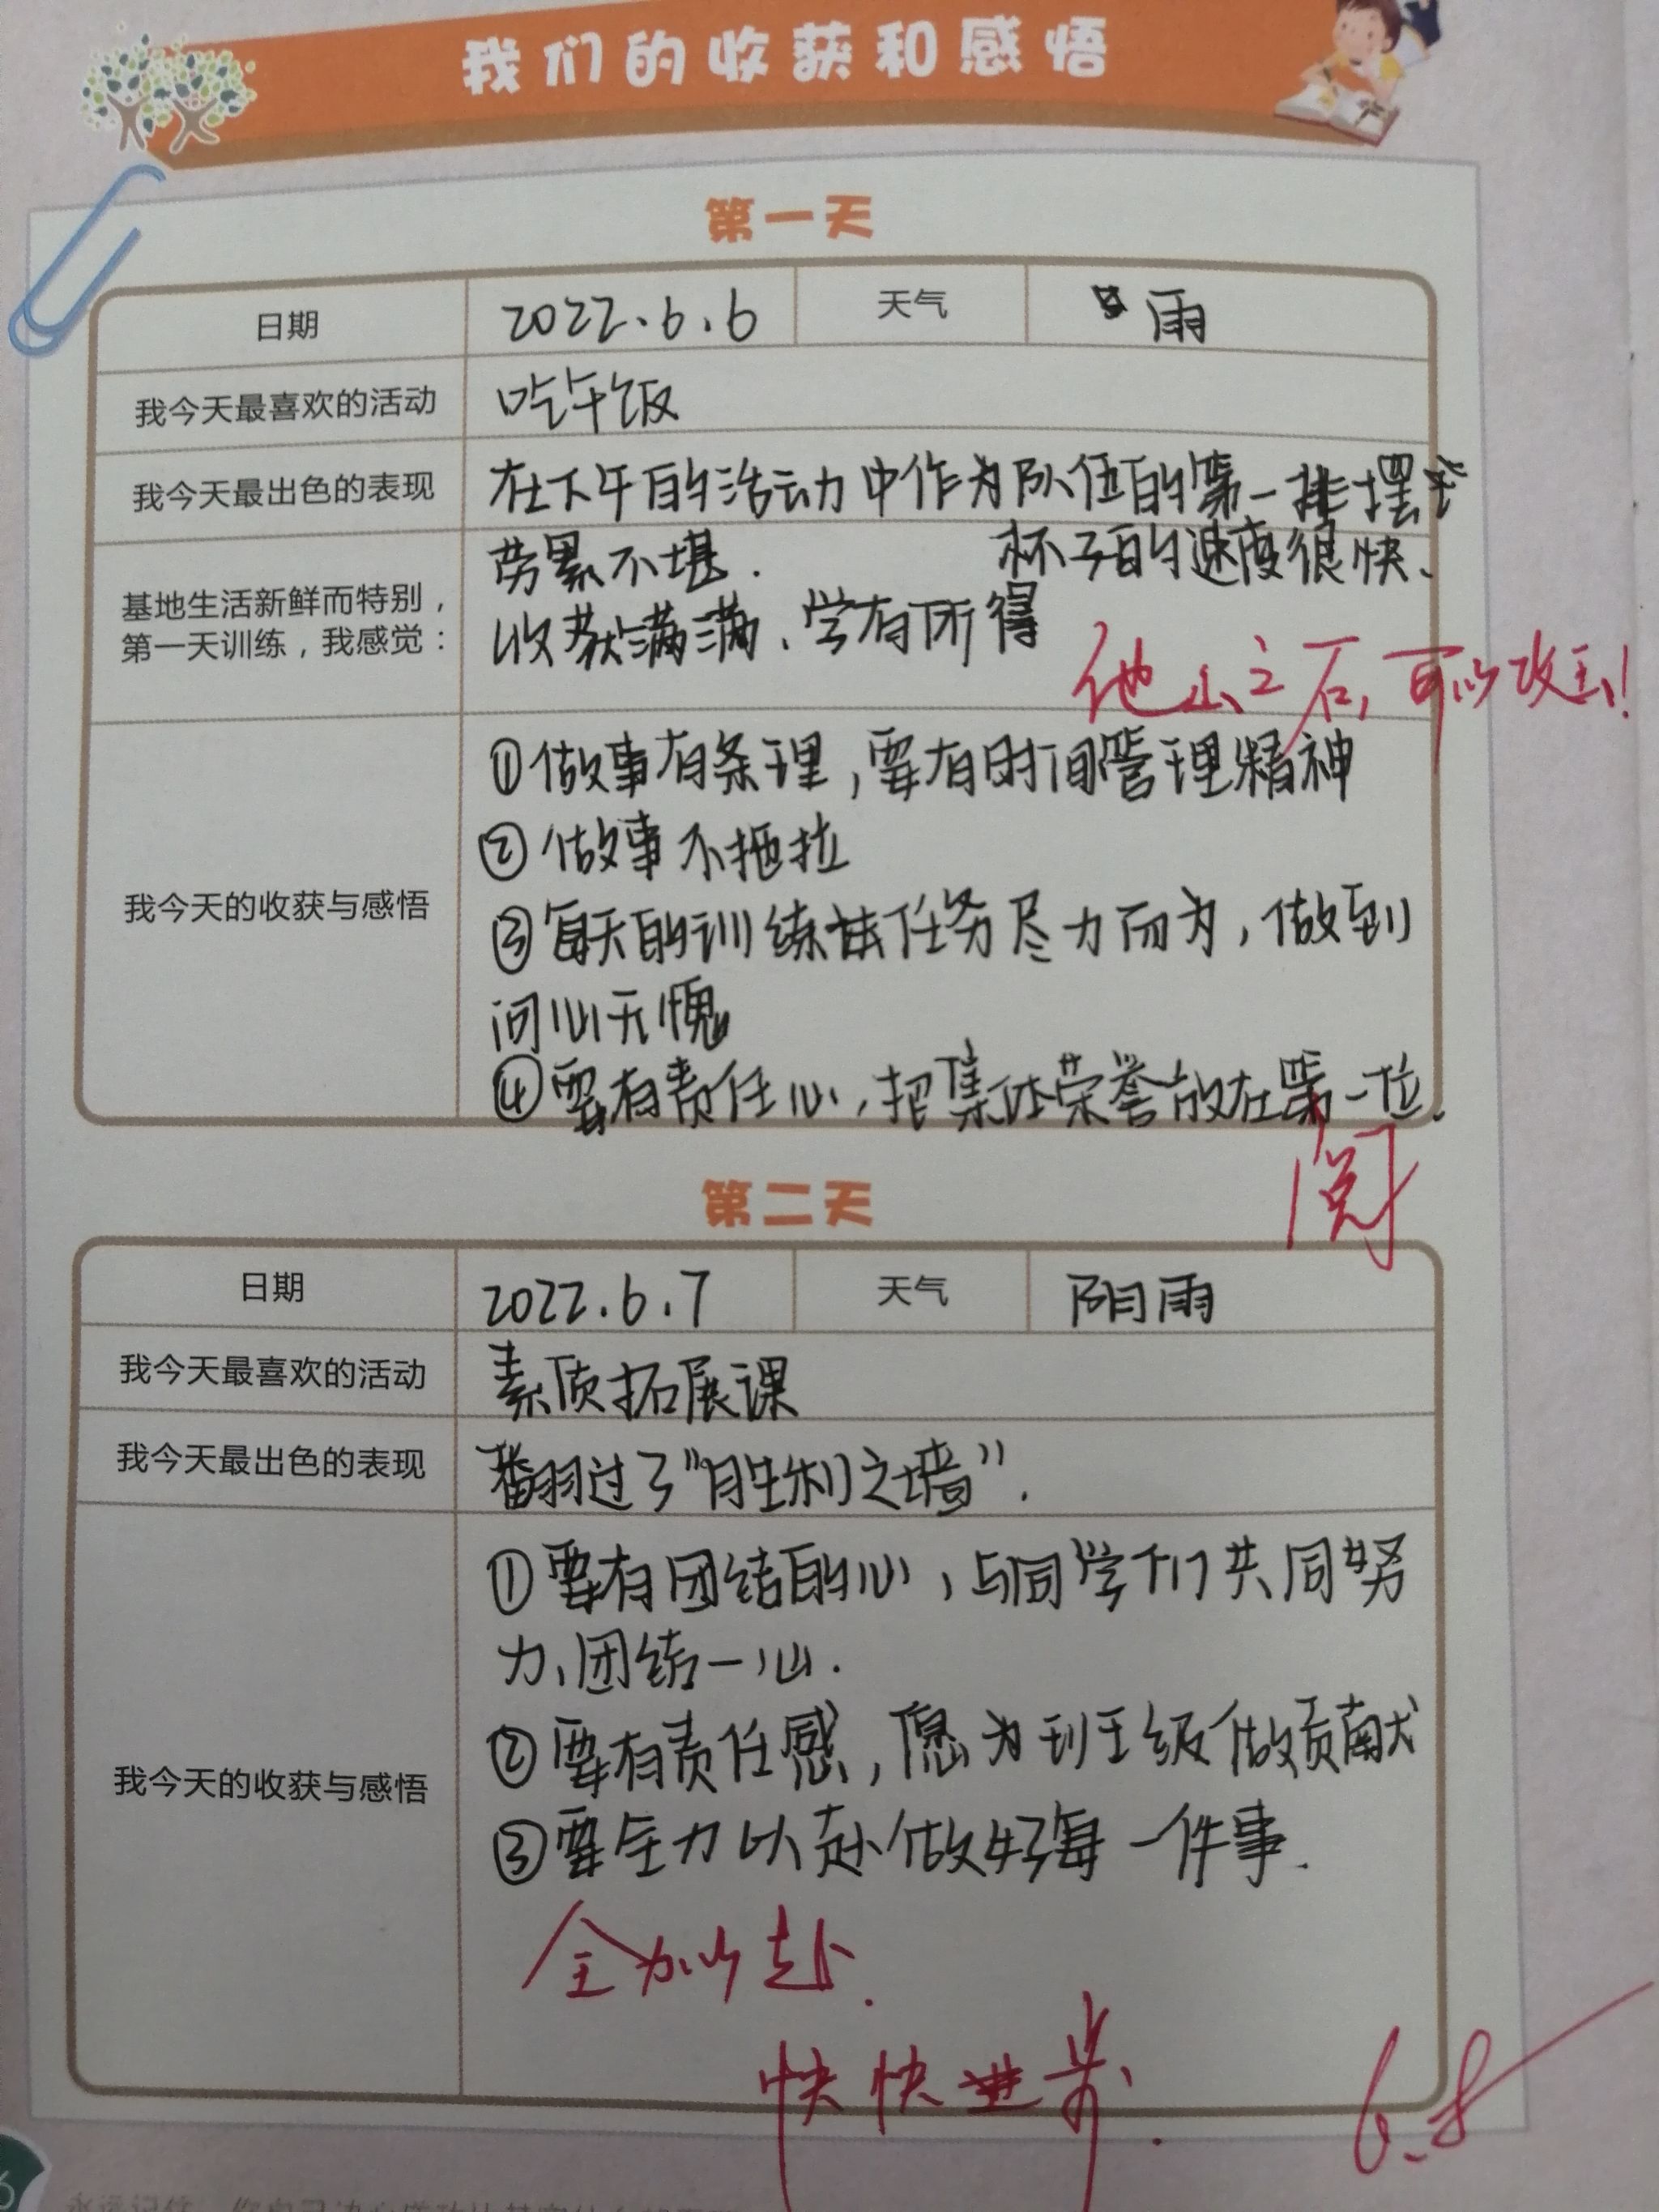 我们的收获和感悟
第一天
日期 2022.6.6 天气 雨
我今天最喜欢的活动 吃午饭
我今天最出色的表现 在下午的活动中作为队伍的第一排摆
杯子的速度很快、
基地生活新鲜而特别，
第一天训练，我感觉：
劳累不堪.
收获满满、学有所得
他山之石，可以攻玉！
我今天的收获与感悟
①做事有条理，要有时间管理精神
②做事不拖拉
③每天的训练任务尽力而为，做到
问心无愧
④要有责任心，把集体荣誉放在第一位.
阅
第二天
日期 2022.6.7 天气 阴雨
我今天最喜欢的活动 素质拓展课
我今天最出色的表现 翻过了"胜利之墙".
我今天的收获与感悟
①要有团结的心，与同学们共同努
力、团结一心.
②要有责任感，愿为班级做贡献
③要全力以赴做好每一件事.
全力以赴.
快快进步.
6.8
6